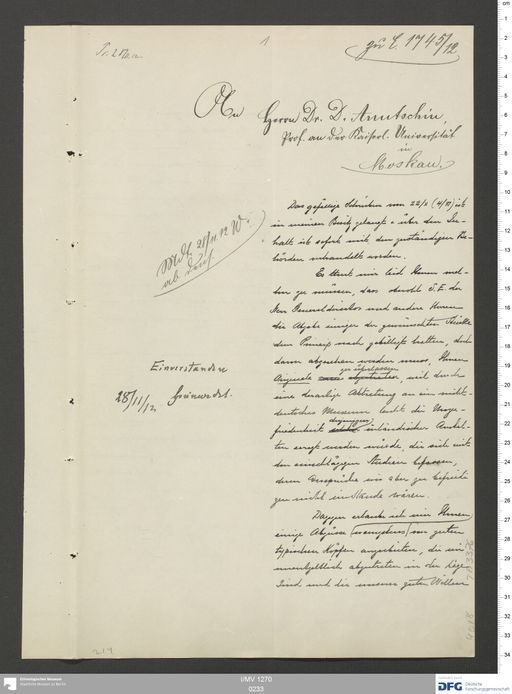 1
zu E. 1745/12
An Herrn Dr. D. Anutschin,
Prof. an der Kaiserl. Universität
in
Moskau.
Das gefällige Schreiben vom 22/X (4/XI) ist
in meinen Besitz gelangt u über den In-
halt ist sofort mit den zuständigen Be-
hörden verhandelt worden.
Es thut mir leid Ihnen mel-
den zu müssen, dass obwohl S.E. der
Herr Generaldirektor und andere Herren
die Abgabe einiger der gewünschten Stücke
dem Princip nach gebilligt hatten, doch
davon abgesehen werden muss, Ihnen
Originale zu überlassen, weil durch
eine derartige Abtretung an ein nicht-
deutsches Museum leicht die Unzu-
friedenheit inländischer Anstal-
ten erregt werden würde, die sich mit
den einschlägigen Studien befassen,
deren Ansprüche wir aber zu befriedi-
gen nicht im Stande wären.
Dagegen erlaube ich mir Ihnen
einige Abgüsse (wenigstens) von guten
typischen Köpfen anzubieten, die wir
unentgeltlich abzutreten in der Lage
sind und die unseren guten Willen
28/11. 12 W.
Einverstanden
28/11/12 Grünwedel.
I/MV 1270
0233
Ethnologisches Museum
Staatliche Museen zu Berlin
DFG Deutsche
Forschungsgemeinschaft